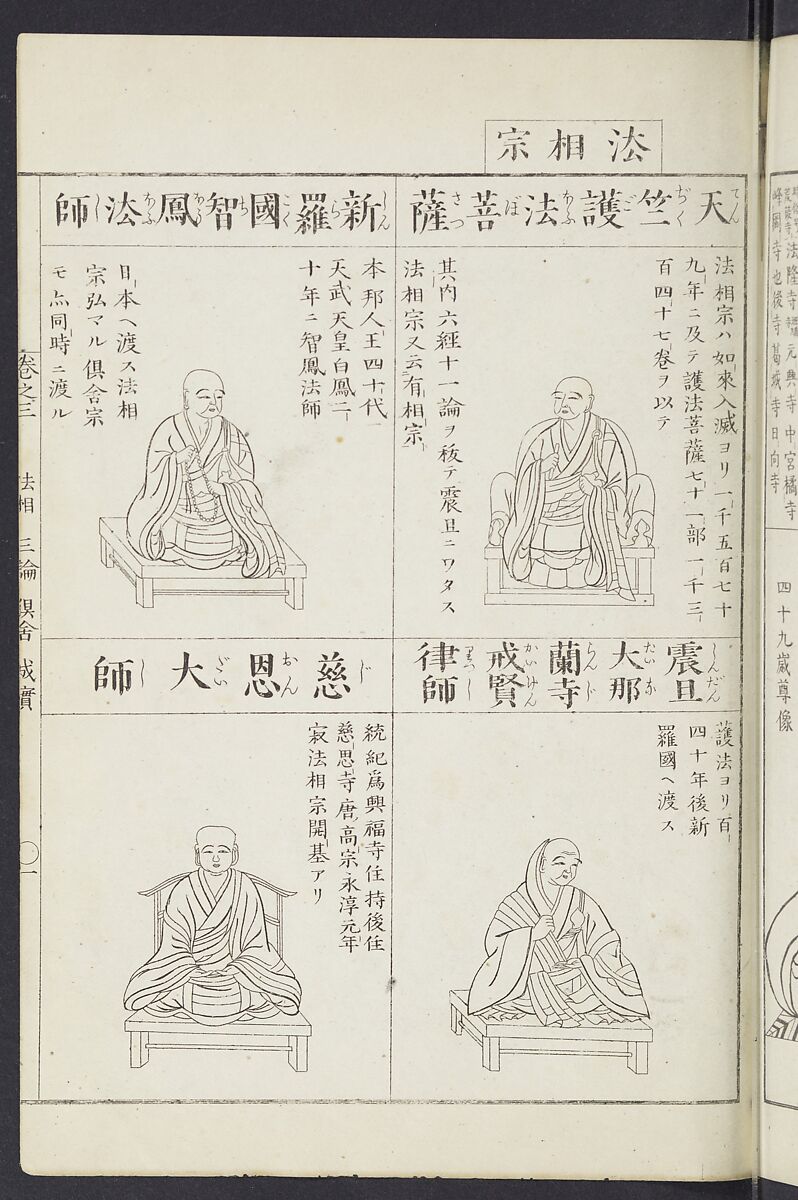 法相宗
天竺護法菩薩
てんぢくごほふぼさつ
法相宗ハ如來入滅ヨリ一千五百七十
九年ニ及テ護法菩薩七十一部一千三
百四十七巻ヲ以テ
其内六經十一論ヲ
テ震旦ニワタス
法相宗又云有相宗
新羅國智鳳法師
しんらこくちほうほふし
本邦人王四十代
天武天皇白鳳二
十年ニ智鳳法師
日本ヘ渡ス法相
宗弘マル倶舎宗
モ亦同時ニ渡ル
震旦大那蘭寺戒賢律師
しんだんだいならんじかいけんりつし
護法ヨリ百
四十年後新
羅國ヘ渡ス
慈恩大師
じおんだいし
統紀爲興福寺住持後住
慈思寺唐高宗永淳元年
寂法相宗開基アリ
卷之三
法相 三論 倶舎 成實
〇一
法隆寺 元興寺 中宮 橘寺
峰岡寺也 後寺 葛城寺 日向寺
四十九歳尊像